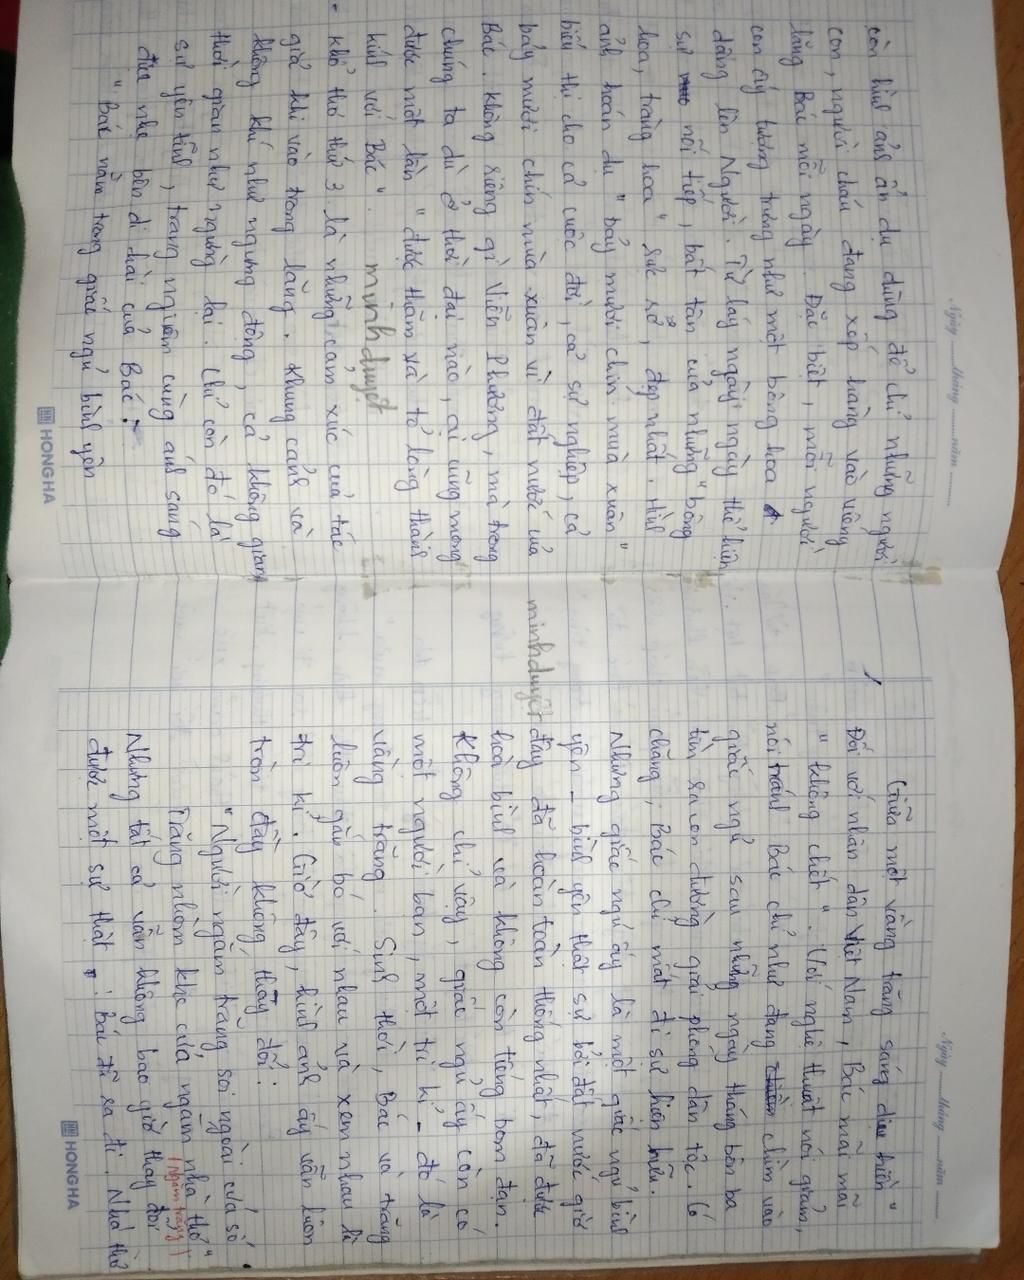 Ngày ........tháng ........năm ............
còn hình ảnh ẩn dụ dùng để chỉ những người
con, người cháu đang xếp hàng vào viếng
lăng Bác mỗi ngày. Đặc biệt, mỗi người
con ấy tượng trưng như một bông hoa
dâng lên Người. Từ láy "ngày ngày" thể hiện
sự nối tiếp, bất tận của những "bông
hoa, tràng hoa" rực rỡ, đẹp nhất. Hình
ảnh hoán dụ "bảy mươi chín mùa xuân"
biểu thị cho cả cuộc đời, cả sự nghiệp, cả
bảy mươi chín mùa xuân vì đất nước của
Bác. Không riêng gì Viễn Phương, mà trong
chúng ta dù ở thời đại nào, ai cũng mong
được một lần "được thăm và tỏ lòng thành
kính với Bác".
minhduyệt
- khổ thơ thứ 3 là những cảm xúc của tác
giả khi vào trong lăng. Khung cảnh và
không khí như ngưng đọng, cả không gian
thời gian như ngừng lại. Chỉ còn đó là
sự yên tĩnh, trang nghiêm cùng ánh sáng
dịu nhẹ bên di hài của Bác:
"Bác nằm trong giấc ngủ bình yên
HONGHA
Ngày ........tháng ........năm ............
Giữa một vầng trăng sáng dịu hiền"
Đối với nhân dân Việt Nam, Bác mãi mãi
"không chết". Với nghệ thuật nói giảm,
nói tránh Bác chỉ như đang chìm vào
giấc ngủ sau những ngày tháng bôn ba
tìm ra con đường giải phóng dân tộc. Có
chăng, Bác chỉ mất đi sự hiện hữu.
Nhưng giấc ngủ ấy là một giấc ngủ bình
yên - bình yên thật sự bởi đất nước giờ
đây đã hoàn toàn thống nhất, đã được
minhduyệt
hoà bình và không còn tiếng bom đạn.
Không chỉ vậy, giấc ngủ ấy còn có
một người bạn, một tri kỉ - đó là
vầng trăng. Sinh thời, Bác và trăng
luôn gắn bó với nhau và xem nhau là
tri kỉ. Giờ đây, hình ảnh ấy vẫn luôn
tròn đầy không thay đổi:
"Người ngắm trăng soi ngoài cửa sổ
Trăng nhòm khe cửa ngắm nhà thơ"
(Ngắm trăng)
Nhưng tất cả vẫn không bao giờ thay đổi
được một sự thật: Bác đã ra đi. Nhà thơ
HONGHA